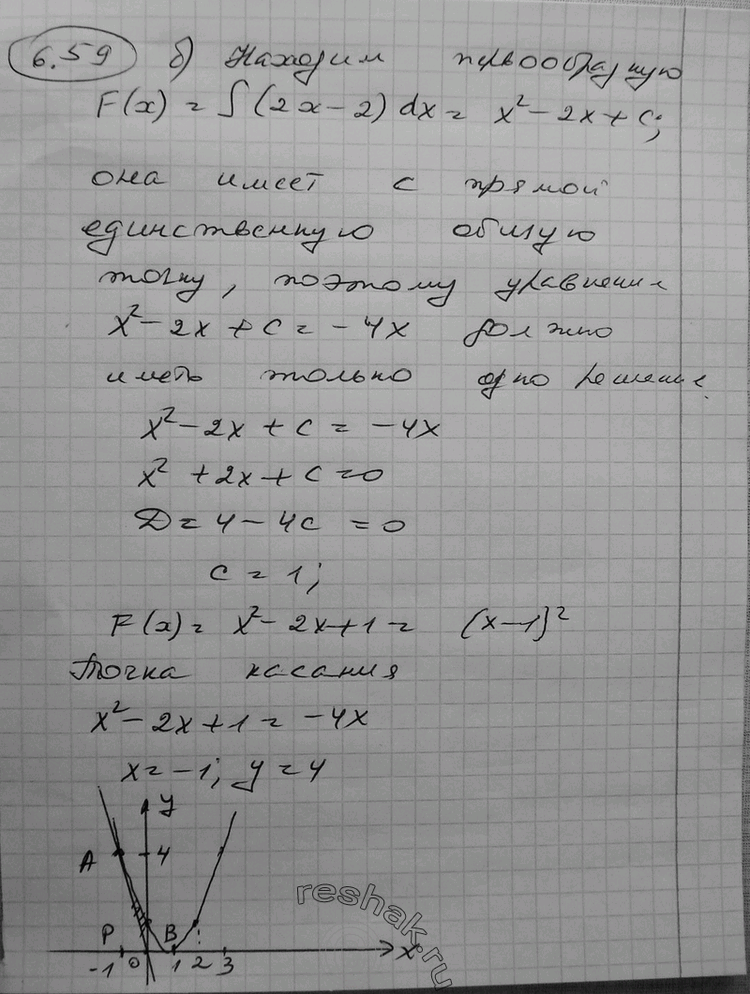 6.59 б) Находим первообразную
F(x) = ∫(2x-2) dx = x² - 2x + c;
она имеет с прямой
единственную общую
точку, поэтому уравнение
x² - 2x + c = -4x должно
иметь только одно решение.
x² - 2x + c = -4x
x² + 2x + c = 0
D = 4 - 4c = 0
c = 1;
F(x) = x² - 2x + 1 = (x-1)²
Точка касания
x² - 2x + 1 = -4x
x = -1; y = 4
y
A 4
P B
-1 0 1 2 3 x
reshak.ru